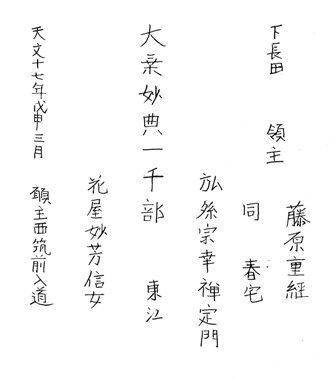 下長田　領主
藤原重経
同　春宅
弘孫宗幸禅定門
大乗妙典一千部　東江
花屋妙芳信女
願主西筑前入道
天文十七年戊申三月